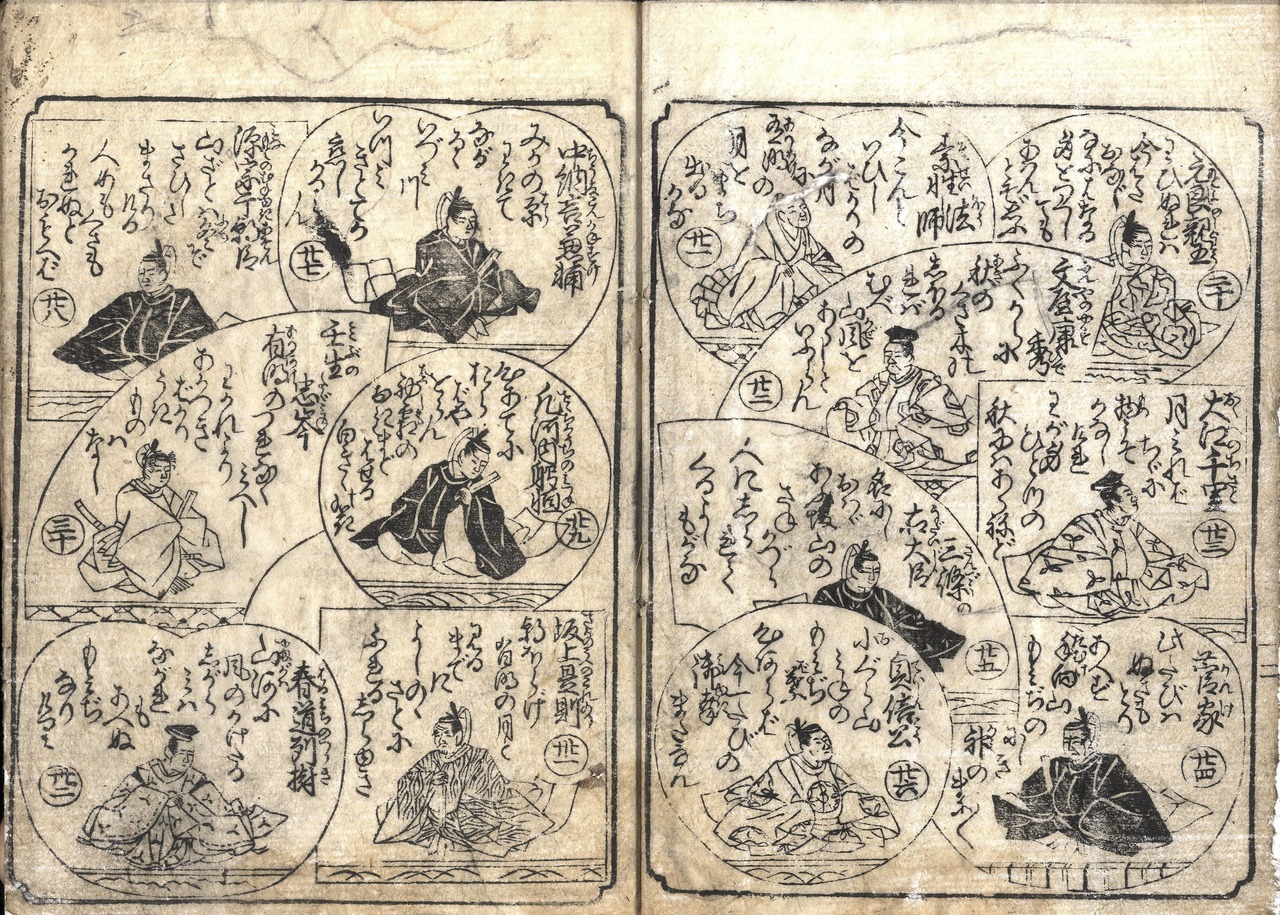 元良親王
二十
わびぬれば
今はた
おなじ
なにはなる
身をつくしても
あはんとぞ
素性法師
廿一
今こんと
いひし
ばかりの
なが月
有明の
月を
まち
出る
かな
文屋康秀
廿二
ふくからに
秋の
くさ木の
しほる
れば
むべ
山風を
あらしと
いふらん
大江千里
廿三
月みれば
ちゞに
物こそ
かなし
けれ
わが身
ひとつの
秋にはあらねど
菅家
廿四
此たびは
ぬさも
とり
あへず
手向山
もみぢの
にしき
神の
まに〳〵
三條の
右大臣
廿五
名にし
おはゞ
あふ坂山の
さねかづら
人にしられて
くるよし
もがな
貞信公
廿六
小ぐら山
みねの
もみぢ
葉
心あらば
今一たびの
御幸
またなん
中納言兼輔
廿七
みかの原
わきて
ながるゝ
いづみ川
いつみ
きとてか
恋し
かるらん
源宗于朝臣
廿八
山ざとは
冬ぞ
さひしさ
まさり
ける
人めも
くさも
かれぬと
おもへば
凡河内躬恒
廿九
心あてに
おらばや
おらん
初霜の
おきまど
はせる
白ぎくの花
壬生忠岑
三十
有明の
つれなく
みへし
わかれより
あかつき
ばかり
うき
ものは
なし
坂上是則
丗一
朝ぼらけ
有明の月と
みる
までに
よしのゝ
さとに
ふれる
しら雪
春道列樹
丗二
山河に
風のかけたる
しがらみは
ながれも
あへぬ
もみぢ
なり
けり